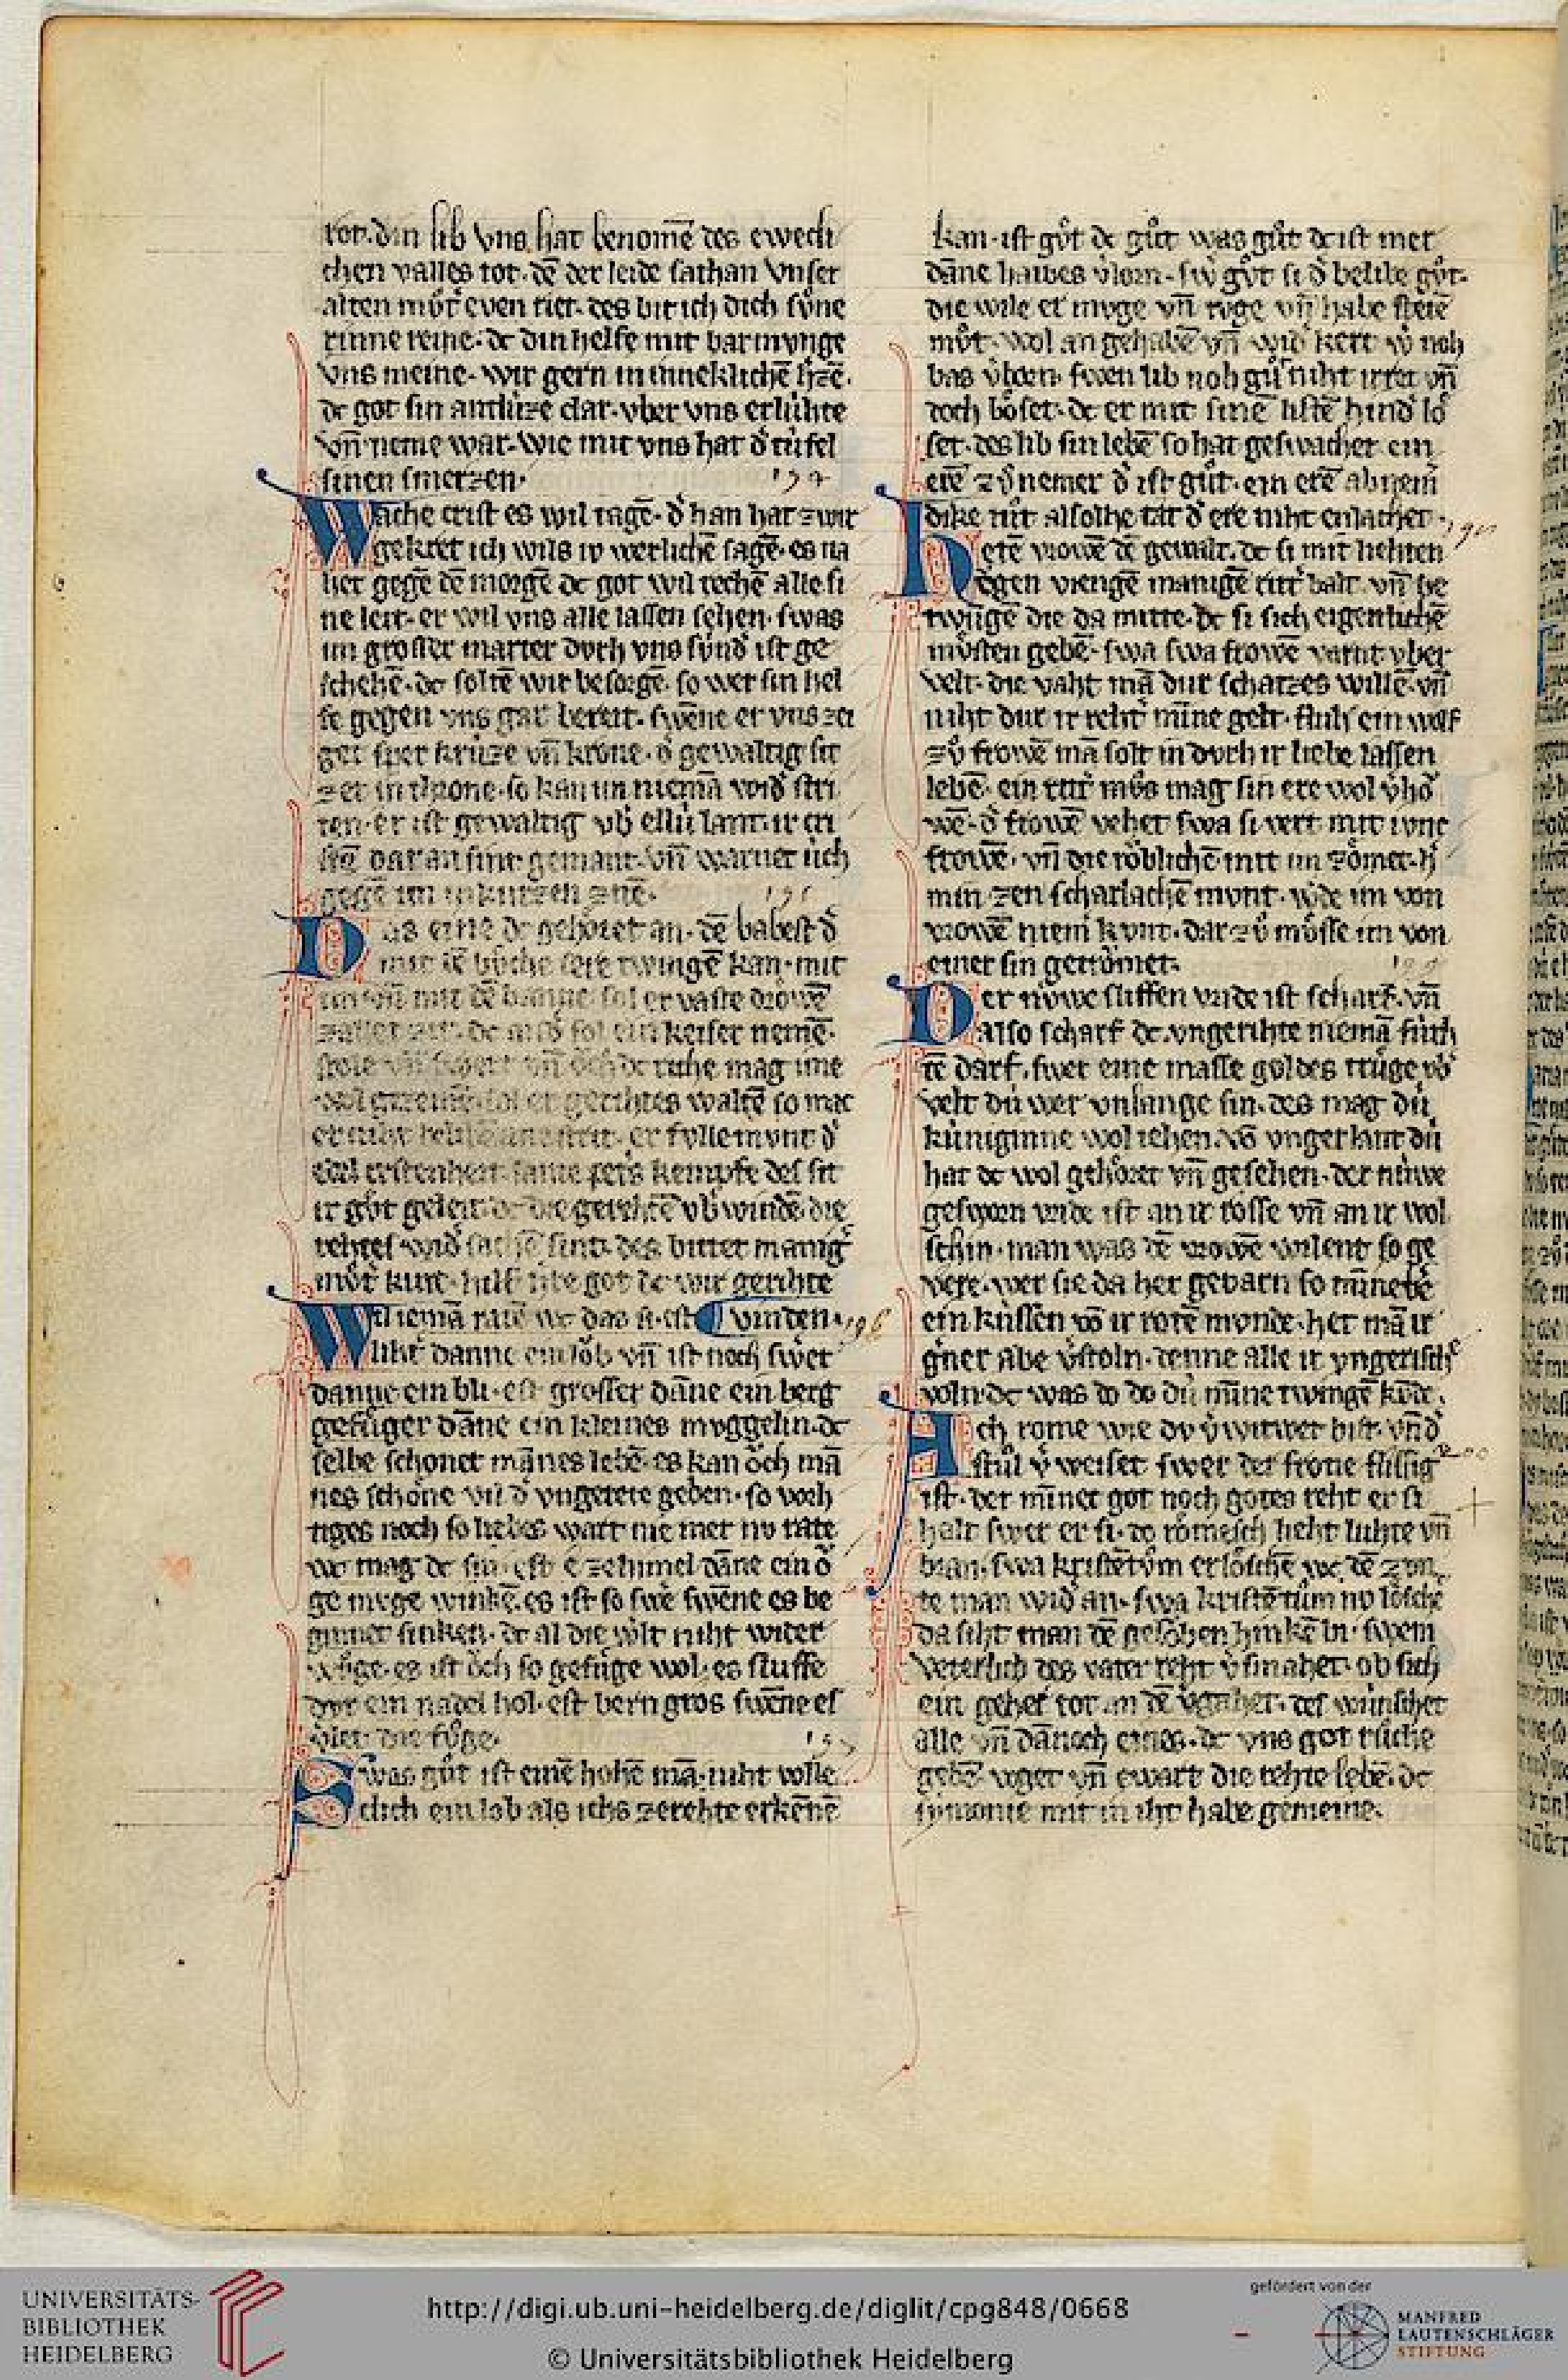 rot. din lib vns hat benomē des ewecli
chen valles tot. dē der leide sathan vnser
alten můt̄ even riet. des bit ich dich sůne
rinne reine. dc din helfe mit barmvnge
vns meine. wir gern in inneklichē h̄zē.
dc got sin antlúze clar. vber vns erlúhte
vn̄ neme war. wie mit vns hat d̄ túfel
sinen smerzen. 194
Wache crist es wil tagē. d̄ han hat zwir
gekret ich wils iv werlichē sagē. es na
het gegē dē morgē dc got wil rechē alle si
ne leit. er wil vns alle lassen sehen. swas
im grosser marter dvrh vns súnd̄ ist ge
schehē. dc soltē wir besorgē. so wer sin hel
fe gegen vns gar bereit. swēne er vns zei
get sper krúze vn̄ krone. d̄ gewaltig sit
zet in throne. so kan im niemā wid̄ stri
ten. er ist gewaltig vb̄ ellú lant. ir cri
stē dar an sint gemant. vn̄ warnet úch
gegē im in kurzen zitē. 195
Das eine dc gehöret an. dē babest d̄
mit dē bůche sere twingē kan. mit
vn̄ mit dē banne sol er vaste dröwē
zaller zit. dc and̄ sol ein keiser nemē.
stole vn̄ swert vn̄ och dc ruhe mag ime
wol gezemē. sol er gerihtes waltē so mac
er niht belibē ane strit. er fvllemvnt d̄
edel cristenheit sante peters kempfe des sit
ir got geleit. dc die gerehtē vb̄ windē die
rehtes wid̄ sachē sint. des bittet manig
můt̄ kint. hilf riche got dc wir gerihte
Wil iemā ratē wc das si. est vinden. 196
lihť danne ein lŏb vn̄ ist noch swēr
danne ein bli. est grosser dāne ein berg
gefůger dāne ein kleines mvggelin. dc
selbe schonet mānes lebē. es kan ŏch mā
nes schöne vn̄ d̄ vngetete geben. so vorh
tiges noch so liebes wart nie mer nv rate
wc mag dc sin. est ē zehimel dāne ein ŏ
ge mvge winkē. es ist so swe swēne es be
ginnet sinken. dc al die wlt niht wider
wůge. es ist ŏch so gefůge wol. es sluffe
dvr ein nadel hol. est bern gros swēne es
wlet die fůge. 197
Swas gůt ist einē hohē mā. niht volle
clich ein lob als ichs zerehte erkēnē
kan. ist gůt dc gůt was gůt dc ist mer
dāne halbes v̄lorn. sw gůt si d̄ belibe gůt.
die wile er mvge vn̄ tvge vn̄ habe stetē
můt. wol an gehabē vn̄ wid̄ kert w noh
bas v̄born. swen lib noh gůt niht irret vn̄
doch böset. dc er mit sinē listē hind̄ lö
set. des lib sin lebē so hat geswachet. ein
erē zů nemer d̄ ist gůt. ein erē abnem̄
dike tůt alsolhe tat d̄ ere niht enlachet. 198
Hetē vrowē dē gewalt. dc si mit liehten
ŏgen viengē manigē ritt̄ balt. vn̄ be
twngē die da mitte. dc si sich eigenlichē
můsten gebē. swa swa frowē varnt vber
velt. die vaht mā dur schatzes willē. vn̄
niht dur ir reht̄ mīne gelt. fluh ein wolf
zů frowē mā solt in dvrh ir liebe lassen
lebē. ein ritt̄ můs mag sin ere wol v̄hŏ
wē. d̄ frowē vehet swa si vert mit ivnc
frowē. vn̄ die röblichē mit im zŏmet. h̄
min zen scharlachē mvnt. wrde im von
vrowē niem̄ kvnt. dar zů můsse im von
einer sin getrŏmet. 199
Der núwe sliffen vride ist scharf. vn̄
also scharf dc vngerihte niemā fúrh
tē darf. swer eine masse goldes trůge vb̄
velt dú wer vnlange sin. des mag dú
kúniginne wol iehen. vō vngerlant dú
hat dc wol gehöret vn̄ gesehen. der núwe
gesworn vride ist an ir rosse vn̄ an ir wol
schin. man was dē vrowē wilent so ge
vere. wer sie da her gevarn so mīnebē
ein kússen vō ir rotē mvnde. her mā ir
gerner abe v̄stoln. denne alle ir vngerischē
voln. dc was do do dú mīne twingē kvde.
Ach rome wie dv v̄witwet bist. vn̄ d̄
stůl v̄weiset swer der frone flissig 200
ist. der mīnet got noch gotes reht er si
halt swer er si. dc römesch lieht luhte vn̄
bran. swa kristētům erloschē wc. dē zvn
te man wid̄ an. swa kristētům nv lösche
da siht man dē gelŏben hinkē bi. swem
veterlich des vater reht v̄smahet. ob sich
ein geher tot an dē v̄gahet. des wúnschet
alle vn̄ dānoch eines. dc vns got rúche
gebē voget vn̄ ewart die rehte lebē. dc
symonie mit in iht habe gemeine.
UNIVERSITÄTS-
BIBLIOTHEK
HEIDELBERG
http://digi.ub.uni-heidelberg.de/diglit/cpg848/0668
© Universitätsbibliothek Heidelberg
gefördert von der
MANFRED
LAUTENSCHLÄGER
STIFTUNG